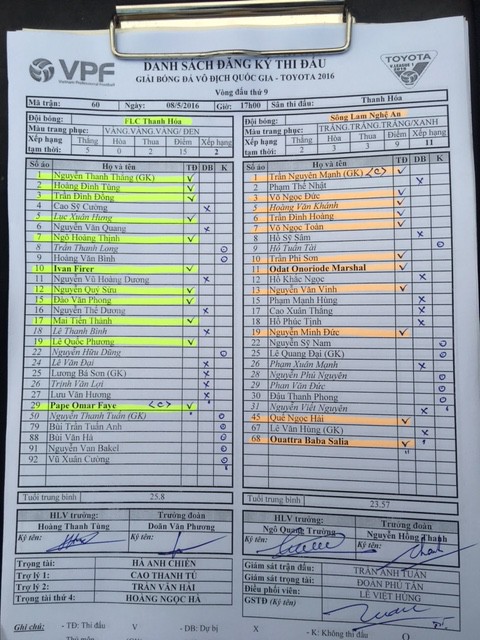 VPF
DANH SÁCH ĐĂNG KÝ THI ĐẤU
GIẢI BÓNG ĐÁ VÔ ĐỊCH QUỐC GIA - TOYOTA 2016
Vòng đấu thứ 9
TOYOTA
Mã trận: 60 Ngày: 08/5/2016 Giờ: 17h00 Sân thi đấu: Thanh Hóa
Đội bóng: FLC Thanh Hóa
Màu trang phục: VÀNG.VÀNG.VÀNG/ ĐEN
Xếp hạng tạm thời: Thắng Hòa Thua Điểm Xếp hạng
5 0 2 15 2
Số áo Họ và tên TĐ DB K
1 Nguyễn Thanh Thắng (GK) v
2 Hoàng Đình Tùng v
3 Trần Đình Đồng v
4 Cao Sỹ Cường x
5 Lục Xuân Hưng v
6 Nguyễn Văn Quang x
7 Ngô Hoàng Thịnh v
8 Trần Thanh Long o
9 Hoàng Văn Bình o
10 Ivan Firer v
11 Nguyễn Vũ Hoàng Dương x
12 Nguyễn Quý Sửu v
15 Đào Văn Phong v
16 Nguyễn Thế Dương x
17 Mai Tiến Thành v
18 Lê Thanh Bình x
19 Lê Quốc Phương v
22 Nguyễn Hữu Dũng o
24 Lê Văn Đại x
25 Lương Bá Sơn (GK) x
26 Trịnh Văn Lợi x
27 Lưu Văn Hương x
29 Pape Omar Faye (C) v
50 Nguyễn Thanh Tuấn (GK) o
79 Bùi Trần Tuấn Anh o
88 Bùi Văn Hà o
91 Nguyễn Van Bakel o
92 Vũ Xuân Cường o
Tuổi trung bình 25.8
HLV trưởng: Trưởng đoàn
Hoàng Thanh Tùng Doãn Văn Phương
Ký tên: Ký tên:
Trọng tài: HÀ ANH CHIẾN
Trợ lý 1: CAO THANH TÚ
Trợ lý 2: TRẦN VĂN HẢI
Trọng tài thứ 4: HOÀNG NGỌC HÀ
Đội bóng: Sông Lam Nghệ An
Màu trang phục: TRẮNG.TRẮNG.TRẮNG/XANH
Xếp hạng tạm thời: Thắng Hòa Thua Điểm Xếp hạng
2 3 3 9 11
Số áo Họ và tên TĐ DB K
1 Trần Nguyên Mạnh (GK) (C) v
2 Phạm Thế Nhật x
3 Võ Ngọc Đức v
5 Hoàng Văn Khánh v
6 Trần Đình Hoàng v
7 Võ Ngọc Toàn v
8 Hồ Sỹ Sâm x
9 Hồ Tuấn Tài o
10 Trần Phi Sơn v
11 Odat Onoriode Marshal v
12 Hồ Khắc Ngọc x
13 Nguyễn Văn Vinh v
15 Phạm Mạnh Hùng x
17 Cao Xuân Thắng x
18 Hồ Phúc Tịnh x
19 Nguyễn Minh Đức v
22 Nguyễn Sỹ Nam o
25 Lê Quang Đại (GK) o
26 Phạm Xuân Mạnh x
28 Nguyễn Phú Nguyên o
29 Phan Văn Đức o
30 Đậu Thanh Phong o
31 Nguyễn Viết Nguyên x
45 Quế Ngọc Hải v
67 Lê Văn Hùng (GK) x
68 Ouattra Baba Salia v
Tuổi trung bình 23.57
HLV trưởng: Trưởng đoàn
Ngô Quang Trường Nguyễn Hồng Thanh
Ký tên: Ký tên:
Giám sát trận đấu: TRẦN ANH TUẤN
Giám sát trọng tài: ĐOÀN PHÚ TẤN
Điều phối viên: LÊ VIỆT HÙNG
GSTĐ (Ký tên)
Ghi chú: - TĐ: Thi đấu V - DB: Dự bị X - K: Không thi đấu